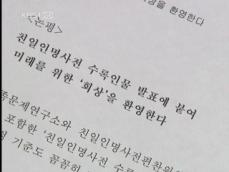 을 환영한다
<논평>
친일인명사전 수록인물 발표에 붙여
미래를 위한 '회상'을 환영한다
족문제연구소와 친일인명사전편찬위원
포함한 '친일인명사전 수록
기준도 꼼꼼히